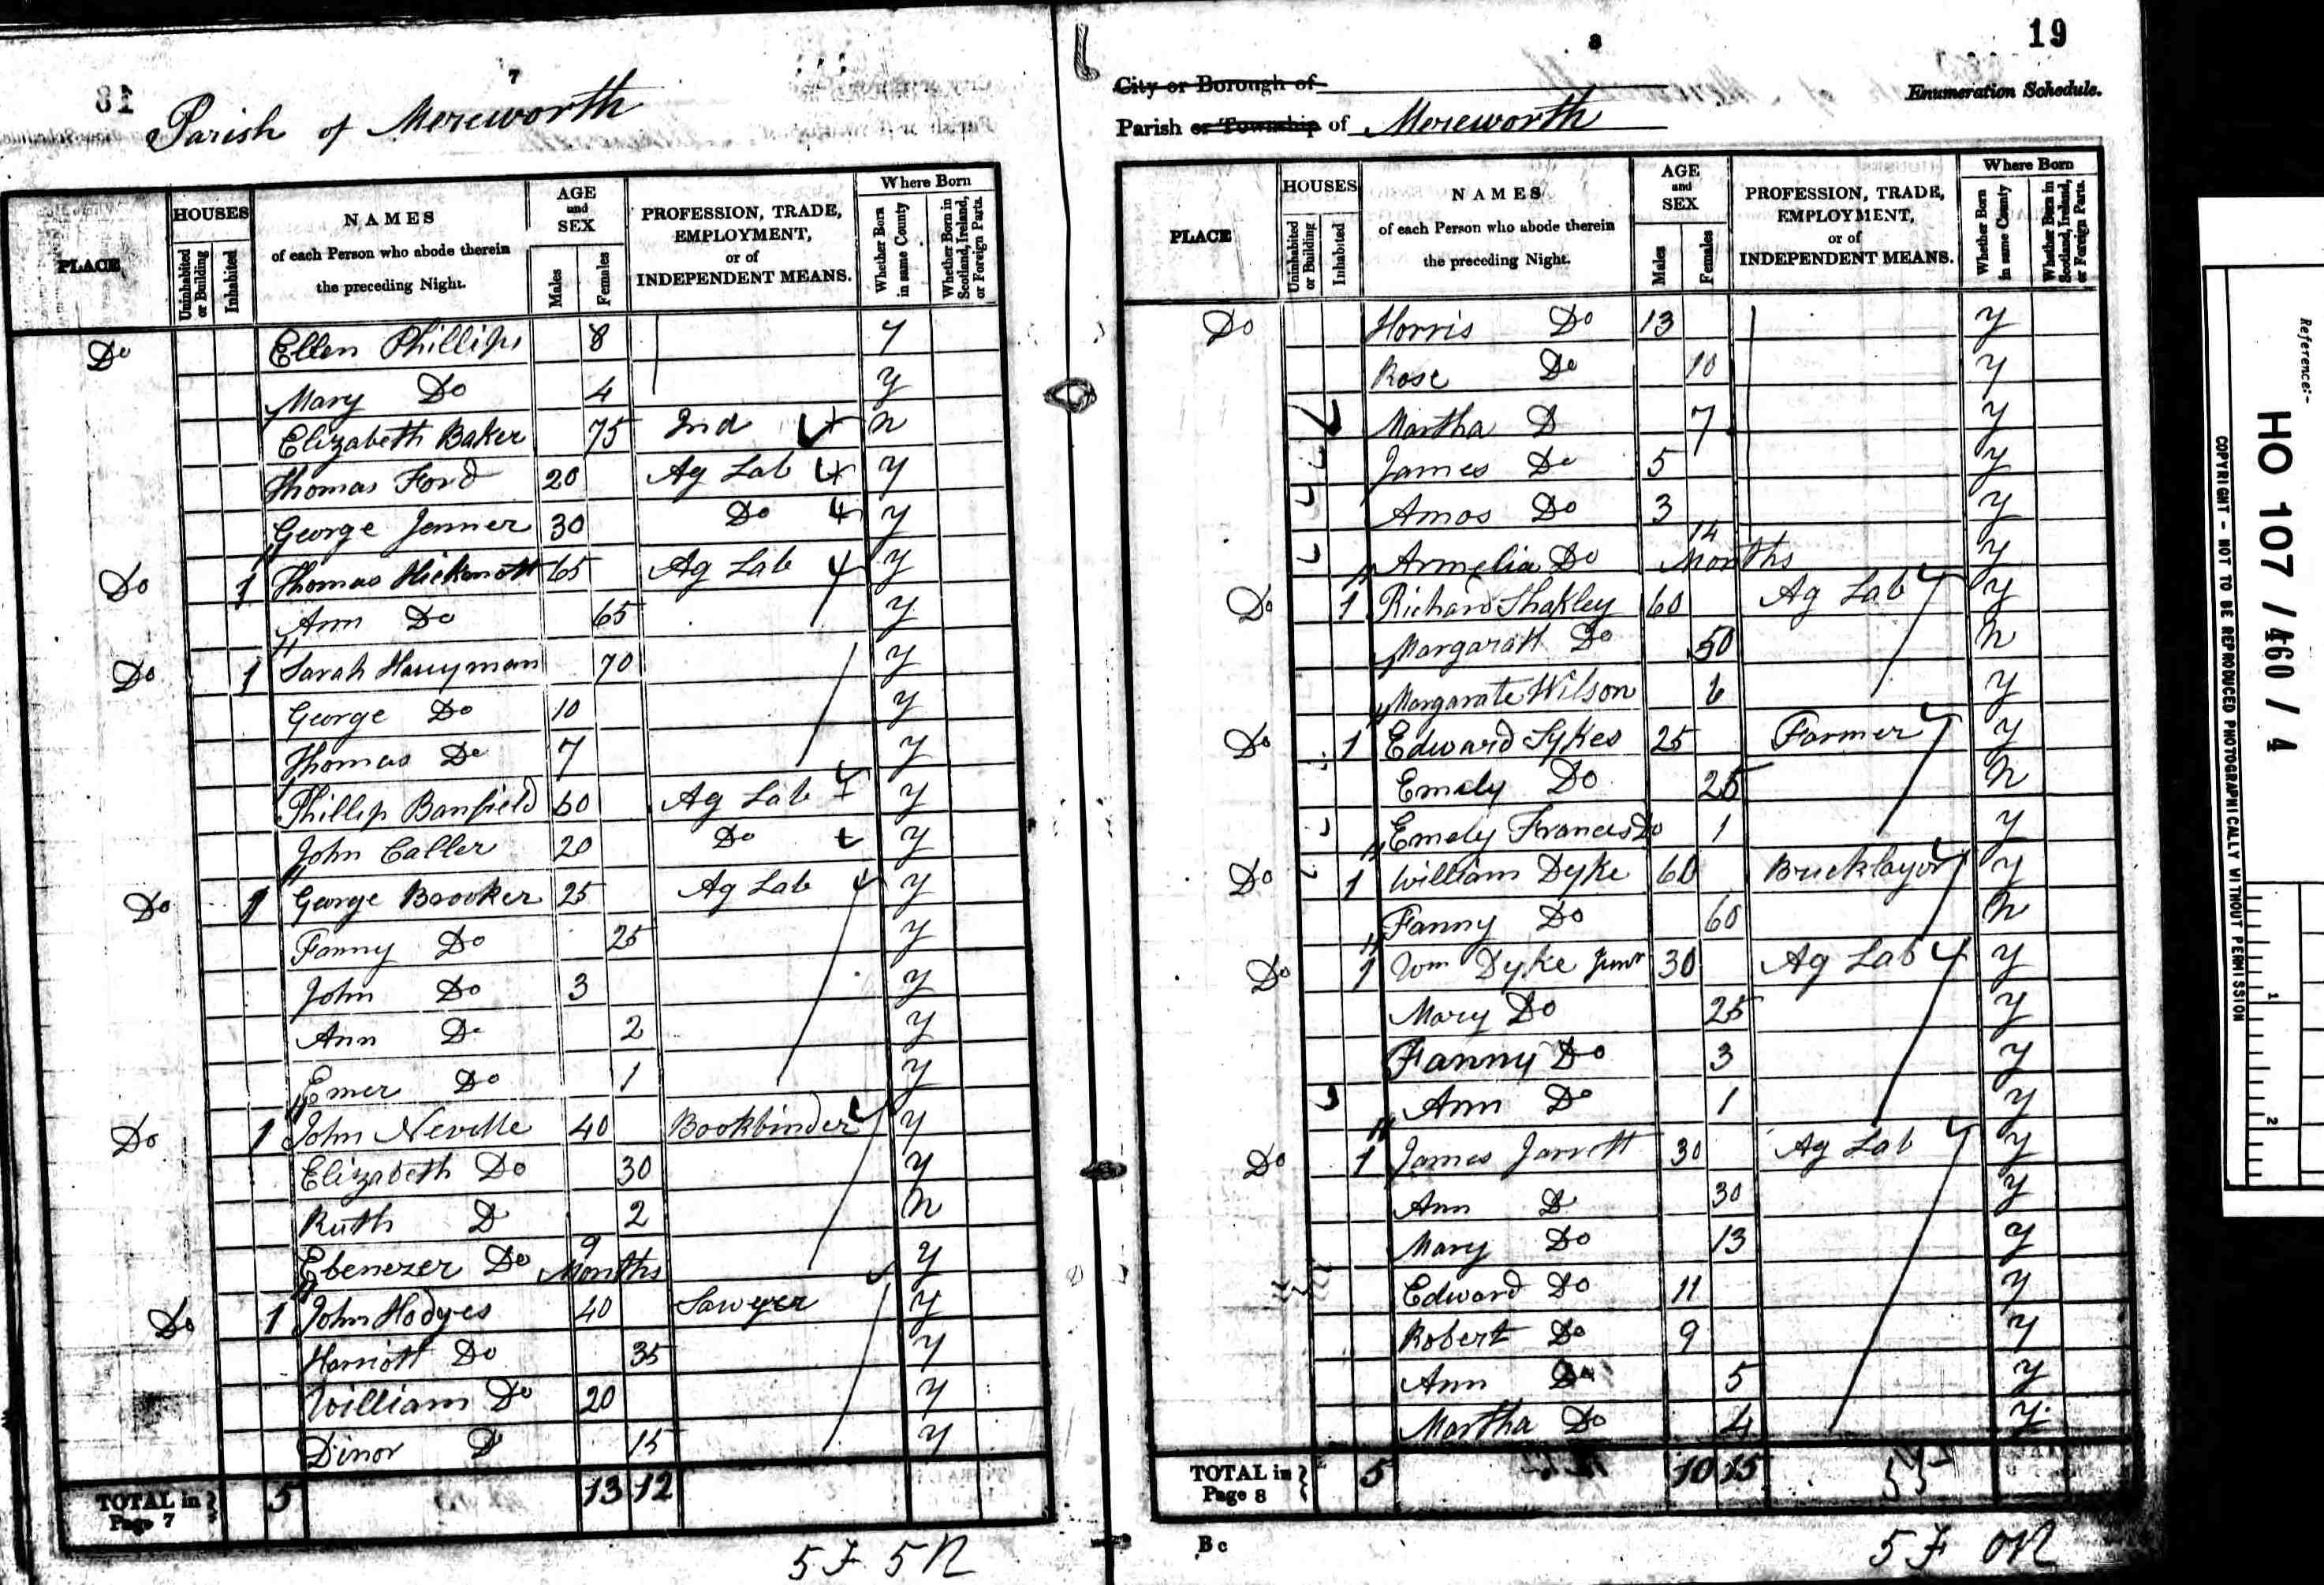 18
7
Parish of Mereworth
PLACE
HOUSES
Uninhabited or Building
Inhabited
NAMES
of each Person who abode therein
the preceding Night.
AGE
and
SEX
Males
Females
PROFESSION, TRADE,
EMPLOYMENT,
or of
INDEPENDENT MEANS.
Where Born
Whether Born in same County
Whether Born in Scotland, Ireland, or Foreign Parts.
Do Ellen Phillips 8 y
Mary Do 4 y
Elizabeth Baker 75 Ind n
Thomas Ford 20 Ag Lab y
George Jenner 30 Do y
Do 1 Thomas Hickmott 65 Ag Lab y
Ann Do 65 y
Do 1 Sarah Harryman 70 y
George Do 10 y
Thomas Do 7 y
Phillip Banfield 60 Ag Lab y
John Caller 20 Do y
Do 1 George Brooker 25 Ag Lab y
Fanny Do 25 y
John Do 3 y
Ann Do 2 y
Emer Do 1 y
Do 1 John Neville 40 Bookbinder y
Elizabeth Do 30 y
Ruth D 2 n
Ebenezer Do 9 Months y
Do 1 John Hodges 40 Sawyer y
Harriott Do 35 y
William Do 20 y
Dinor D 15 y
TOTAL in Page 7 5 13 12
5 F 5 N
8
19
City or Borough of
Enumeration Schedule.
Parish or Township of Mereworth
PLACE
HOUSES
Uninhabited or Building
Inhabited
NAMES
of each Person who abode therein
the preceding Night.
AGE
and
SEX
Males
Females
PROFESSION, TRADE,
EMPLOYMENT,
or of
INDEPENDENT MEANS.
Where Born
Whether Born in same County
Whether Born in Scotland, Ireland, or Foreign Parts.
Do Horris Do 13 y
Rose Do 10 y
Martha D 7 y
James Do 5 y
Amos Do 3 y
Armelia Do 14 Months y
Do 1 Richard Shakley 60 Ag Lab y
Margaratt Do 50 n
Margarate Wilson 6 y
Do 1 Edward Sykes 25 Farmer y
Emely Do 25 n
Emely Francis Do 1 y
Do 1 William Dyke 60 Bricklayor y
Fanny Do 60 n
Do 1 Wm Dyke Junr 30 Ag Lab y
Mary Do 25 y
Fanny Do 3 y
Ann Do 1 y
Do 1 James Jarrett 30 Ag Lab y
Ann D 30 y
Mary Do 13 y
Edward Do 11 y
Robert Do 9 y
Ann Do 5 y
Martha Do 4 y
TOTAL in Page 8 5 10 15 55
B c
5 F 0 N
Reference:-
HO 107 / 460 / 4
COPYRIGHT - NOT TO BE REPRODUCED PHOTOGRAPHICALLY WITHOUT PERMISSION
1
2